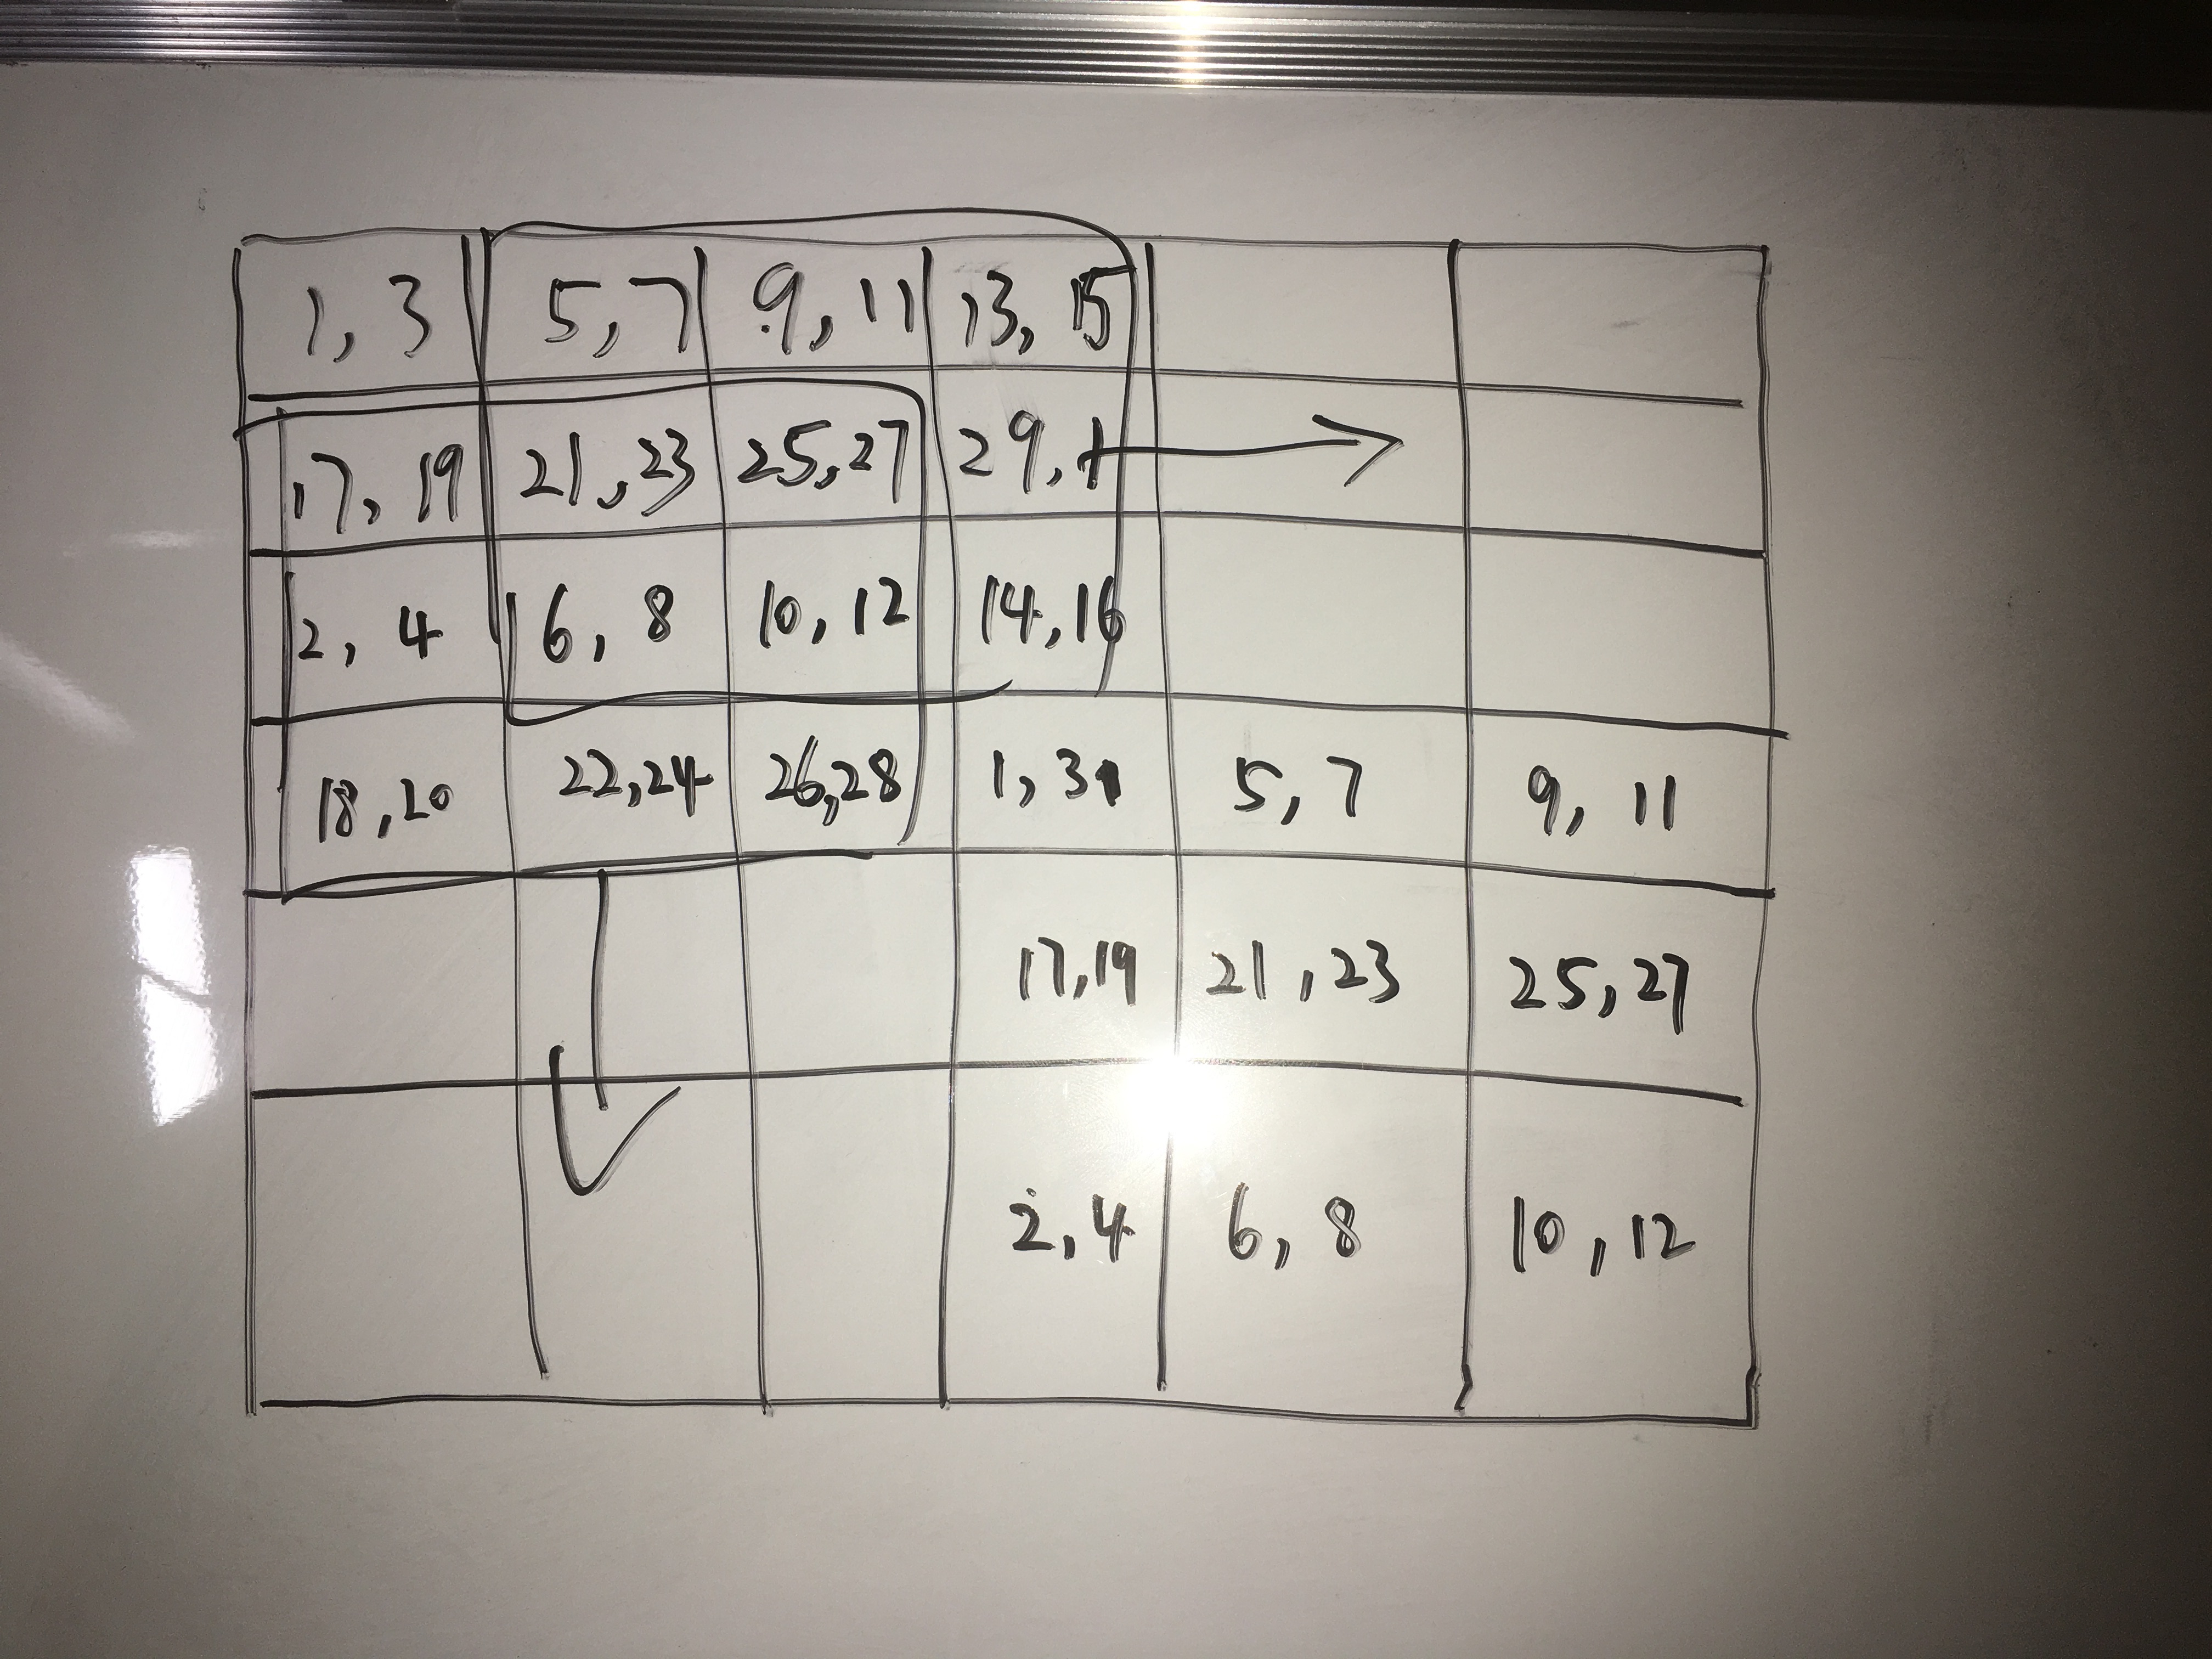 1, 3 5, 7 9, 11 13, 15
17, 19 21, 23 25, 27 29, 1
2, 4 6, 8 10, 12 14, 16
18, 20 22, 24 26, 28 1, 3 5, 7 9, 11
17, 19 21, 23 25, 27
2, 4 6, 8 10, 12